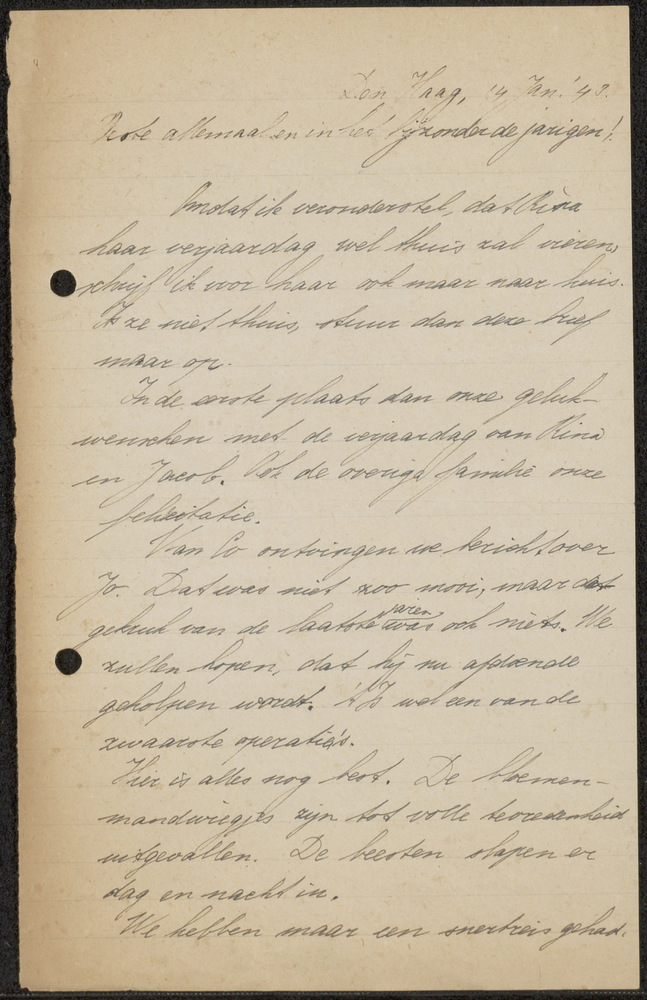 Den Haag, 14 Jan. '43.
Beste allemaal en in het bijzonder de jarigen!
Omdat ik veronderstel, dat Rina
haar verjaardag wel thuis zal vieren,
schrijf ik voor haar ook maar naar huis.
Is ze niet thuis, stuur dan deze brief
maar op.
In de eerste plaats dan onze geluk-
wenschen met de verjaardag van Rina
en Jacob. Ook de overige familie onze
felicitatie.
Van Co ontvingen we bericht over
Jo. Dat was niet zoo mooi, maar dat
van de laatste jaren was ook niets. We
zullen hopen, dat hij nu afdoende
geholpen wordt. 't Is wel een van de
zwaarste operatie's.
Hier is alles nog best. De bloemen-
mandwiegjes zijn tot volle tevredenheid
uitgevallen. De beesten slapen er
dag en nacht in.
We hebben maar een snertreis gehad.